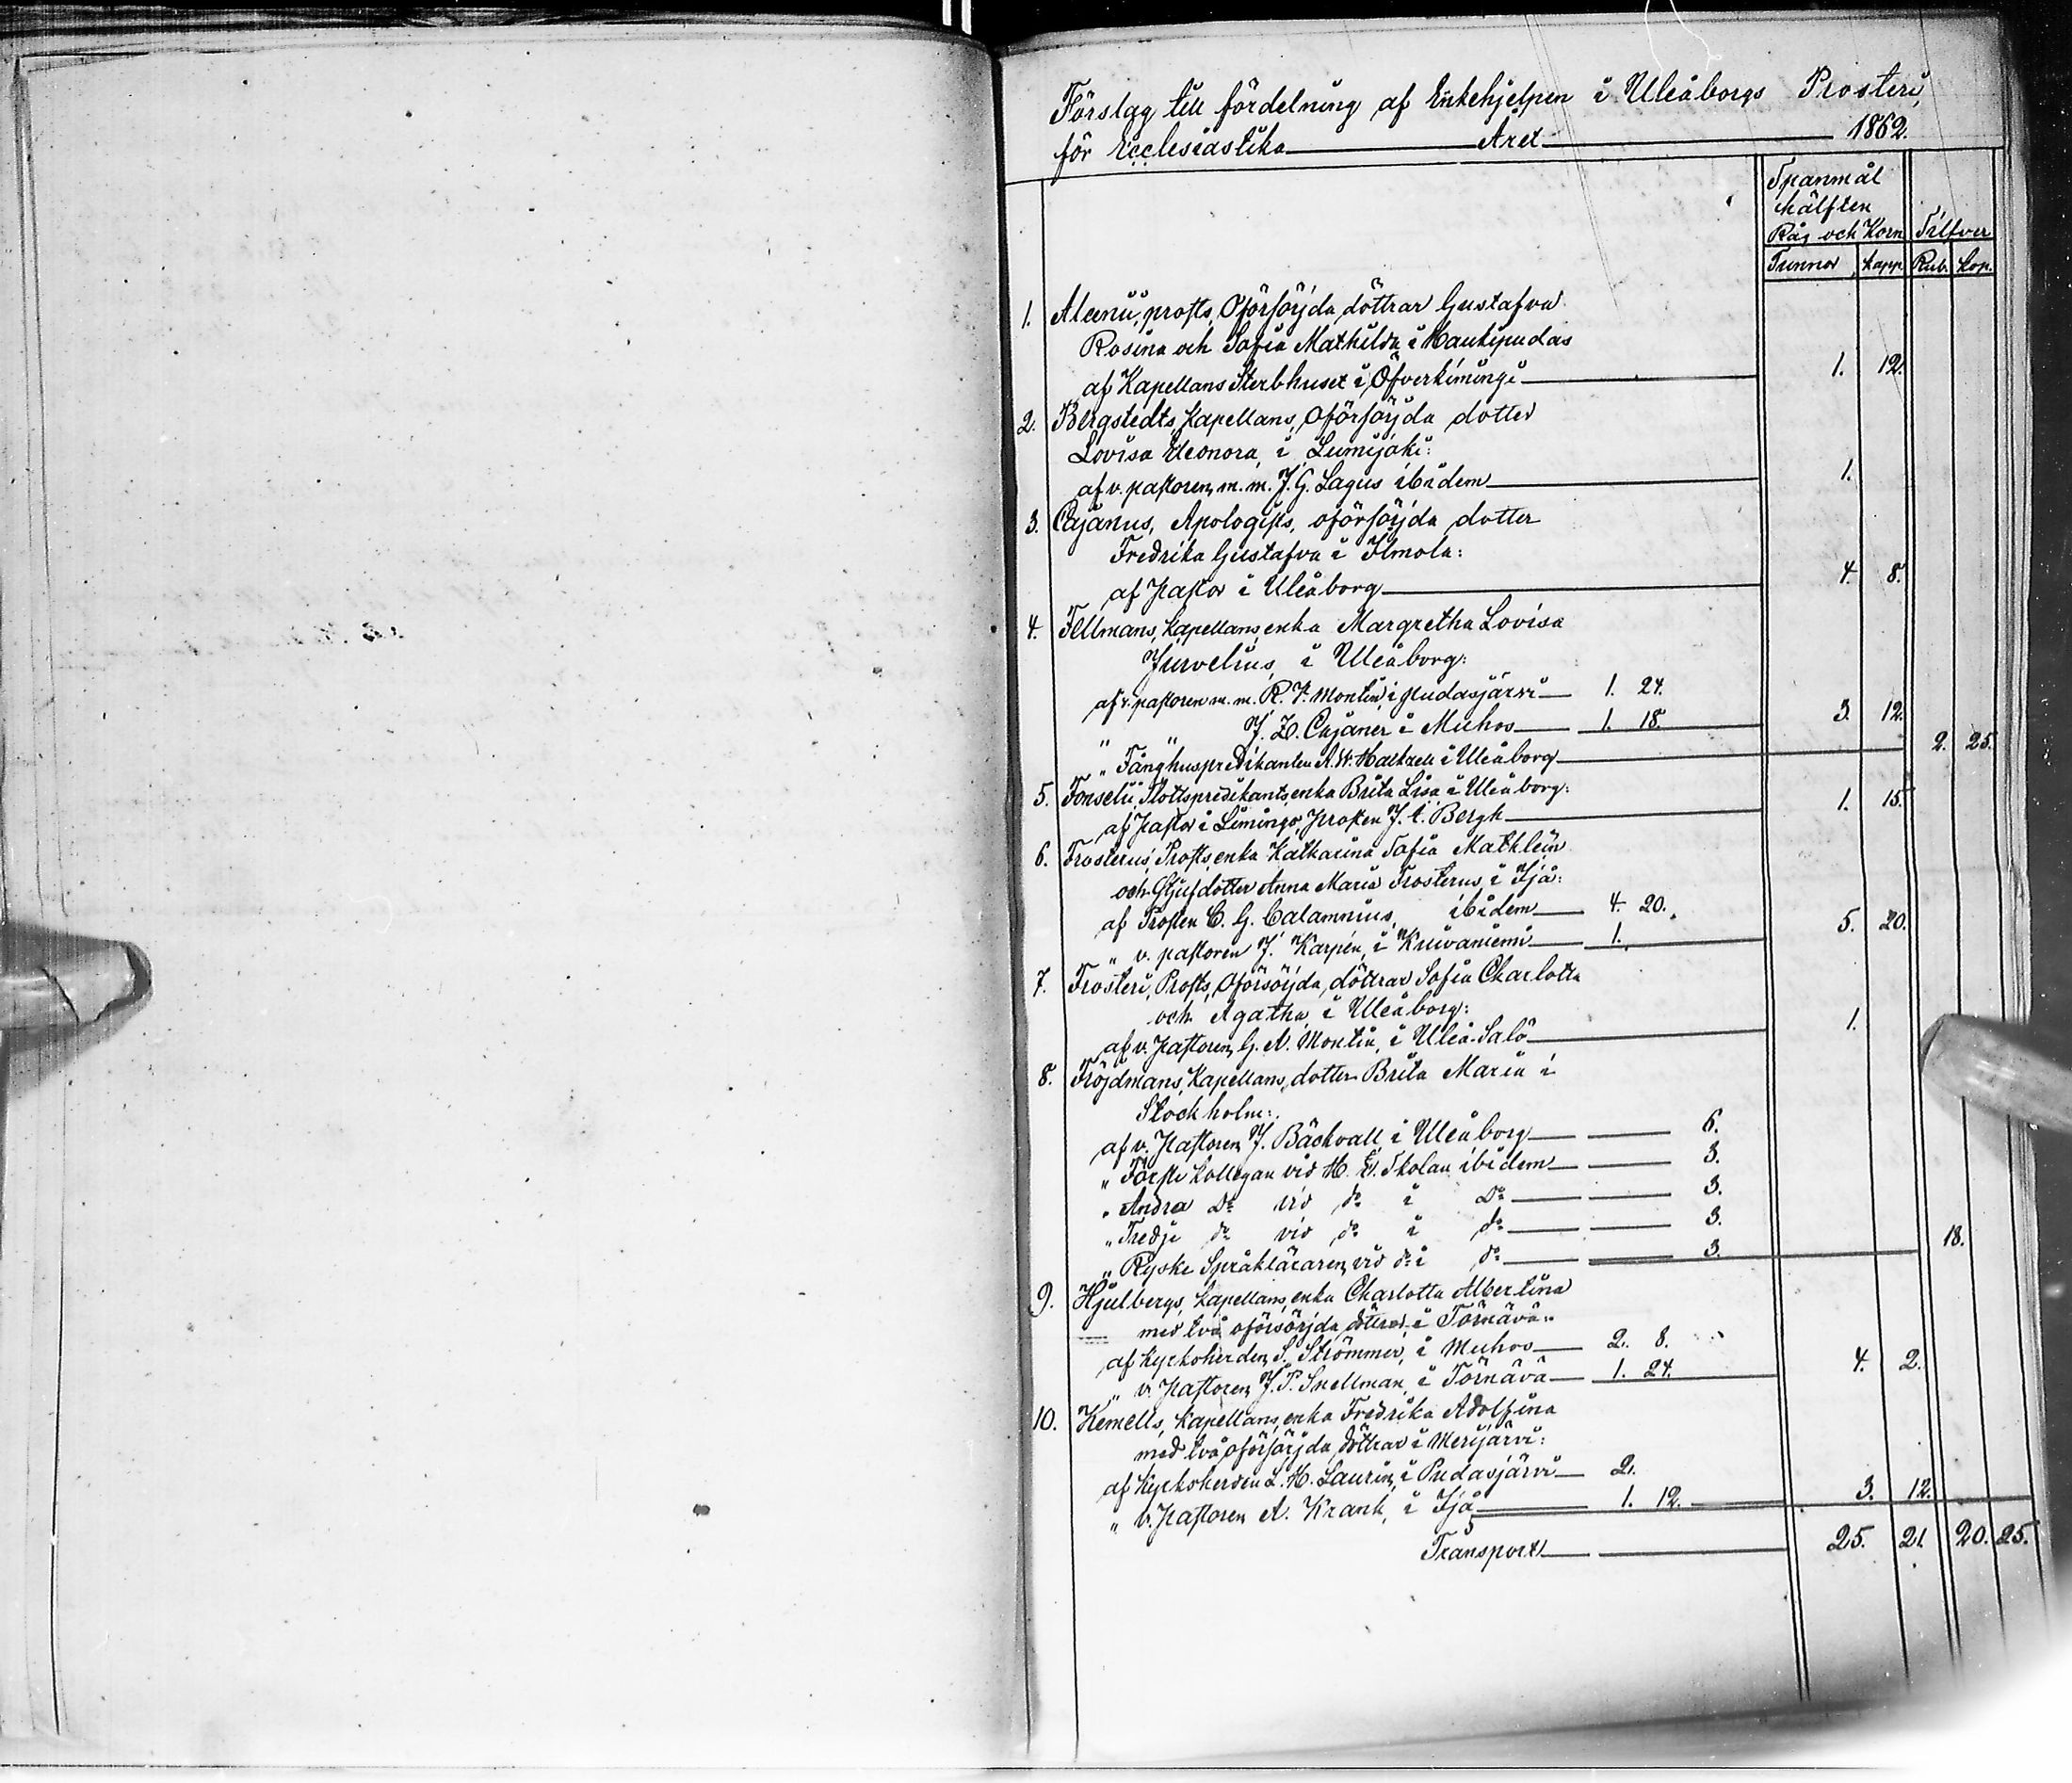 Förslag till fördelning af Enkehjelpen i Uleåborgs Prosteri,
för Ecclesiastika Året 1862.
Spanmål
hälften
Råg och Korn Silfver
Tunnor kapp. Rub. kop.
1. Alcenii, prosts, Oförsörjda döttrar Gustafva
Rosina och Sofia Mathilda i Haukipudas
af Kapellans Sterbhuset i Öfverkiminge 1. 12.
2. Bergstedts, Kapellans, Oförsörjda dotter
Lovisa Eleonora i Lumijoki:
af v. pastoren m. m. J. G. Lagus ibidem 1.
3. Cajanus, Apologists, oförsörjda dotter
Fredrika Gustafva i Ilmola:
af Pastor i Uleåborg 4. 8.
4. Fellmans, kapellans, enka Margretha Lovisa
Jurvelius, i Uleåborg:
af v. pastoren m. m. R. F. Montin i Pudasjärvi 1. 24.
" " J. Z. Cajaner i Muhos 1. 18. 3. 12.
" Fånghuspredikanten A. W. i Uleåborg 2. 25.
5. Fonselii, Slottspredikants, enka Brita Lisa i Uleåborg:
af Pastor i Limingo, Prosten J. A. Bergh 1. 15.
6. Frosterus, Prosts, enka Katharina Sofia Mathlein
och Stjufdotter Anna Maria Frosterus i Ijå:
af Prosten C. G. Calamnius, ibidem 4. 20.
" v. pastoren J. Karpén, i Kuivaniemi 1. 5. 20.
7. Frosteri, Prosts, Oförsörjda, döttrar Sofia Charlotta
och Agatha i Uleåborg:
af v. Pastoren G. A. Montin, i Uleå-Salo 1.
8. Fröjdmans, Kapellans, dotter Brita Maria i
Stockholm:
af v. Pastoren J. Bäckvall i Uleåborg 6.
" Förste kollegan vid H. E. Skolan ibidem 3.
" Andra do vid do i do 3.
" Tredje do vid do i do 3.
" Ryske Språkläraren vid do i do 3. 18.
9. Hjulbergs, kapellans, enka Charlotta Albertina
med två oförsörjda döttrar i Törnävä:
af kyrkoherden S. Strömmer, i Muhos 2. 8.
" v. Pastoren J. P. Snellman, i Törnävä 1. 24. 4. 2.
10. Kemells, kapellans, enka Fredrika Adolfina
med två oförsörjda döttrar i Merijärvi:
af kyrkoherden L. H. Laurin, i Pudasjärvi 2.
" v. Pastoren A. Krank, i Ijå 1. 12. 3. 12.
Transport 25. 21. 20. 25.